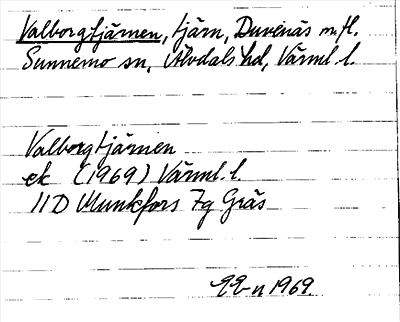 Valborgtjärnen, tjärn, Duvenäs m.fl.
Sunnemo sn, Älvdals hd, Värml. l.
Valborgtjärnen
ek (1969) Värml. l.
11D Munkfors 7g Gräs
1969.